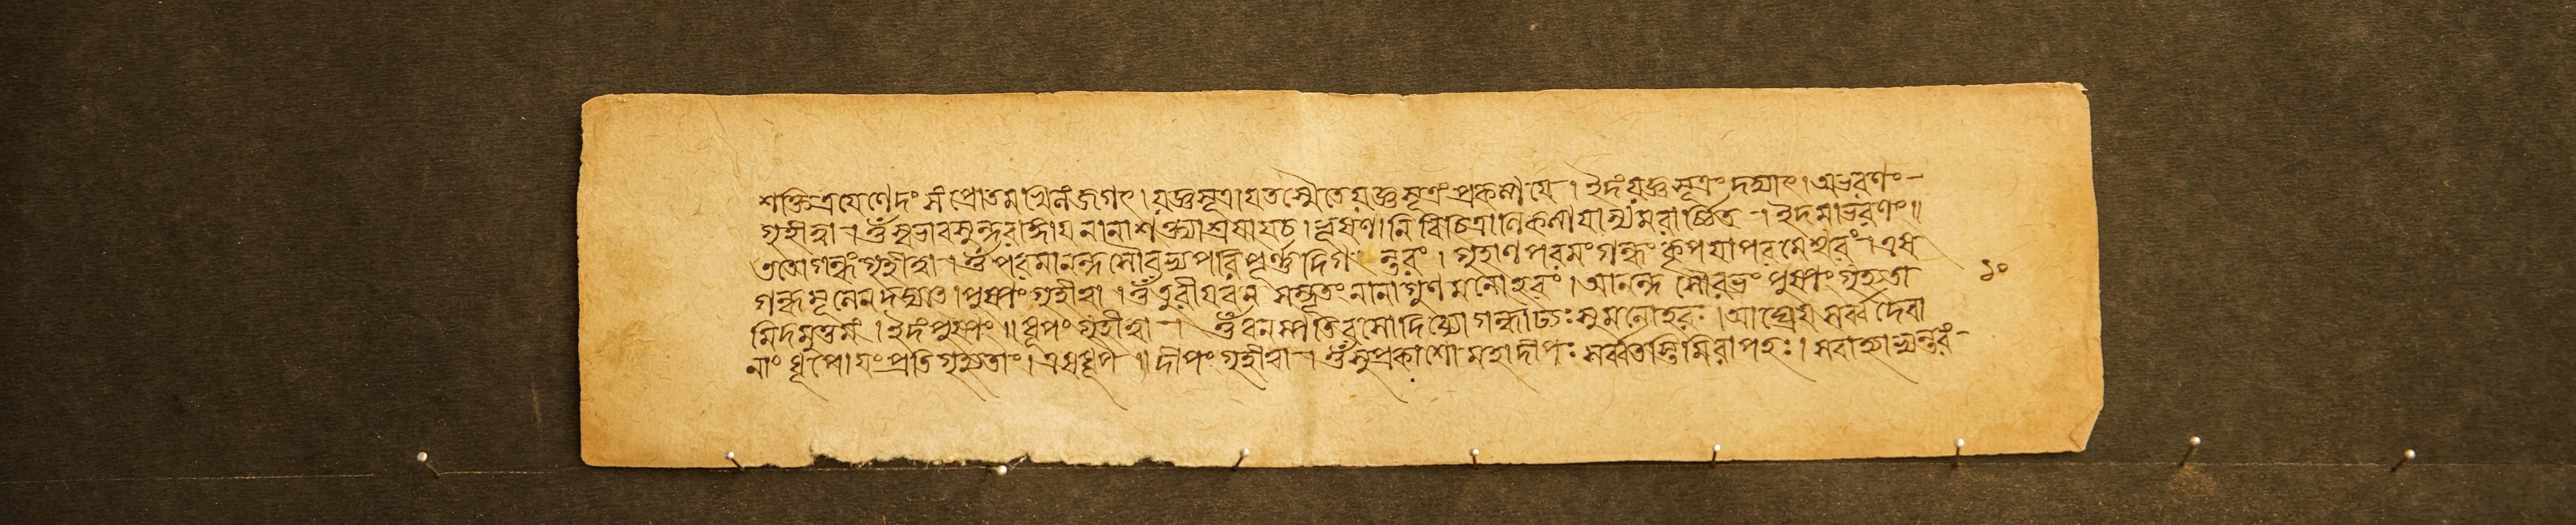 শক্তিত্রযেণেদং সংপ্রোতমখিলং জগৎ। যজ্ঞসূত্রাযতস্মৈতেযজ্ঞসূত্রং প্রকল্পযে। ইদং যজ্ঞসূত্রং দদ্যাৎ। আভরণং-
গৃহীত্বা। ওঁ স্বভাবসুন্দরাঙ্গায নানাশক্ত্যাশ্রযাযচ। ভূষণানি বিচিত্রাণিকল্পযাম্যমরার্চ্চিত। ইদমাভরণং॥
ততোগন্ধং গৃহীত্বা। ওঁ পরমানন্দসৌরভ্যপরিপূর্ণ্ণদিগন্তরং। গৃহাণ পরমংগন্ধং কৃপযাপরমেশ্বর। এষ
গন্ধমূলেনদদ্যাৎ। পুষ্পং গৃহীত্বা। ওঁ তুরীযবনসম্ভূতং নানাগুণমনোহরং। আনন্দসৌরভং পুষ্পং গৃহ্যতা
মিদমুত্তমং। ইদং পুষ্পং॥ ধূপং গৃহীত্বা। ওঁ বনস্পতিরসোদিব্যোগন্ধাঢ্যঃ সুমনোহরঃ। আঘ্রেযঃ সর্ব্বদেবা
নাং ধূপোযং প্রতিগৃহ্যতাং। এষধূপ॥ দীপং গৃহীত্বা। ওঁ সুপ্রকাশো মহাদীপঃ সর্ব্বতস্তিমিরাপহঃ। সবাহ্যাভ্যন্তরং-
১০